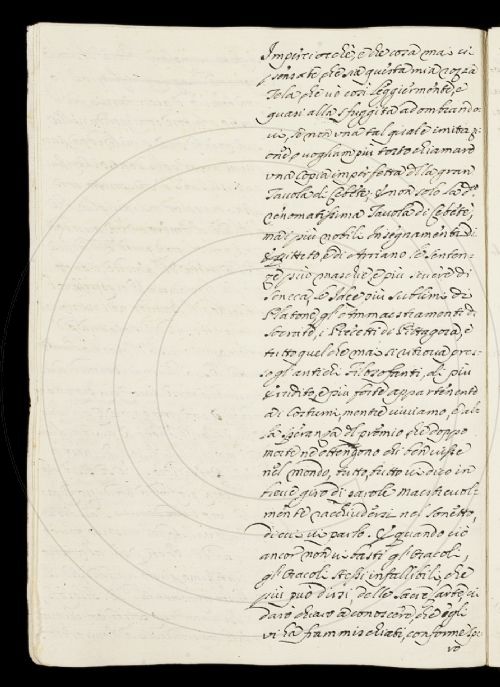 Imperciocchè, e che cosa mai vi
pensate che sia questa mia rozza
Tela che vò così leggiermente, e
quasi alla sfuggita adombrando-
vi, se non vna tal quale imitazi-
one, o vogliam più tosto chiamare
vna Copia imperfetta della gran
Tavola di Cebète; E non solo la
renomatissima Tavola di Cebète,
ma i più nobili insegnamenti di
Epitteto, e di Arriano le senten-
ze più maschie, e più severe di
Seneca, le Idee più sublimi di
Platone, gl'ammaestramenti di
Socrate, i Precetti di Pittagora, e
tutto quel che mai si ritrova pres-
so gl'antichi Filosofanti, di più
erudito, e più forte appartenente
ai Costumi, mentre viviamo, e al-
la speranza del premio che doppo
morte ne ottengono chi ben visse
nel mondo, tutto, tutto vi dico in
breve giro di parole maestrevol-
mente racchiudersi nel sonetto,
di cui vi parlo. E quando ciò
ancor non vi basti gl'Oracoli,
gl'Oracoli stessi infallibili, che
più può dirsi, delle Sacre carte, vi
darò chiaro a conoscere, che egli
vi ha frammischiati, conforme